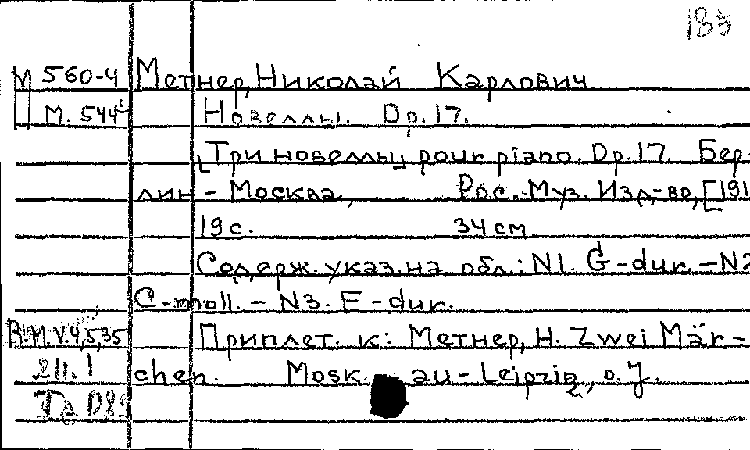 183
М 560-4 Метнер, Николай Карлович
М. 544 Новеллы. Op. 17.
[Три новеллы] pour piano. Op. 17. Бер-
лин - Москва, Рос. Муз. Изд-во, [191
19 с. 34 см
Содерж. указ. на обл.: N1. G-dur. - N2
C-moll. - N3. E-dur.
R.M.V. 4,5,35 Приплет. к: Метнер, Н. Zwei Mär-
chen. Mosk au - Leipzig, o. J.